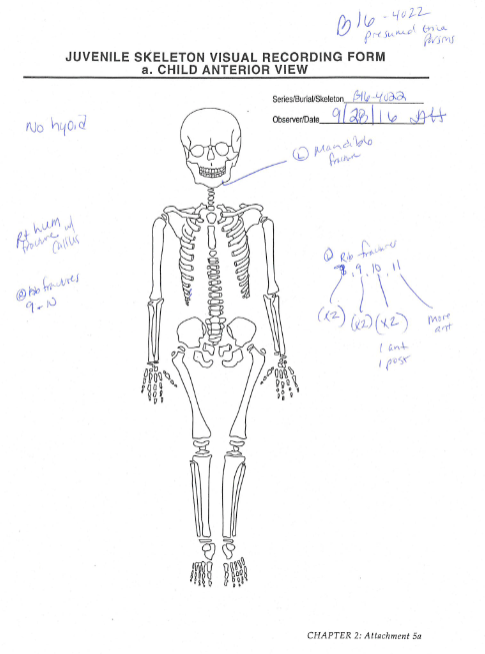 B16-4022
presumed Erica Parsons
JUVENILE SKELETON VISUAL RECORDING FORM
a. CHILD ANTERIOR VIEW
Series/Burial/Skeleton B16-4022
Observer/Date 9/28/16
No hyoid
(L) Mandible
fracture
Rt hum
fracture w/
callus
Rib fractures
8, 9, 10, 11
rib fractures
9
(x2) (x2) (x2)
more
ant
1 ant
1 post
CHAPTER 2: Attachment 5a